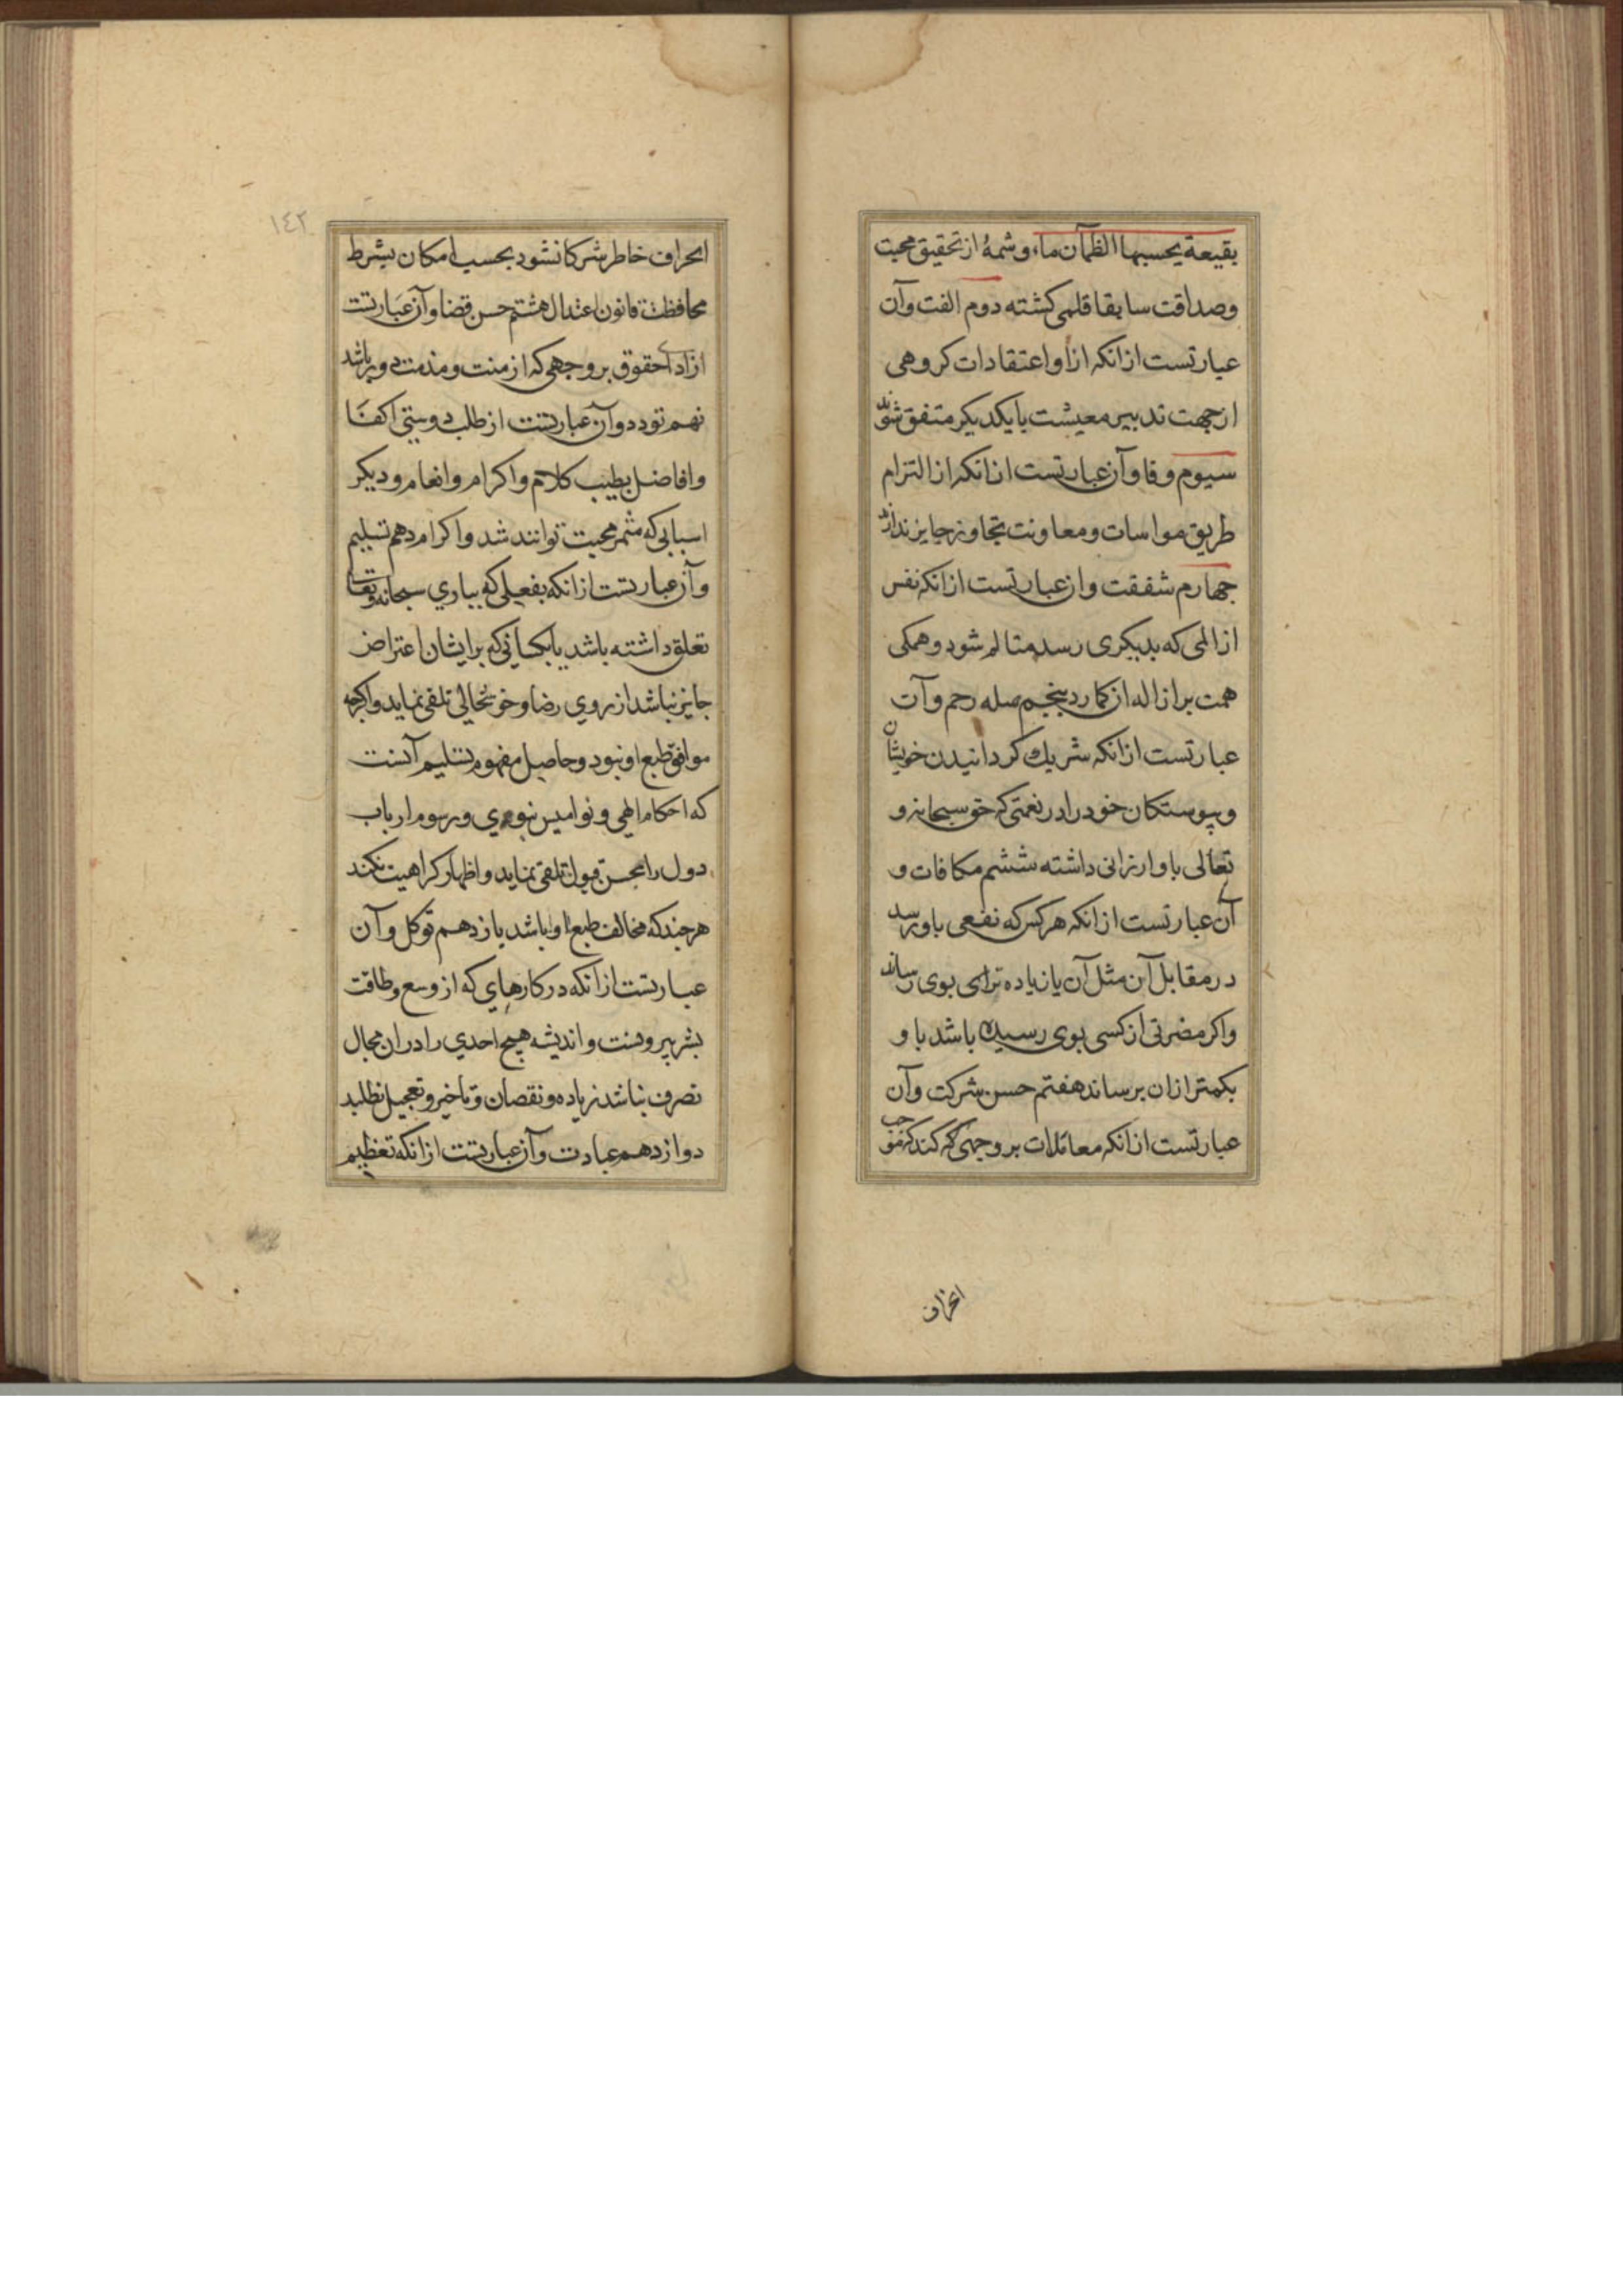 بقیعة یحسبها الظمآن ماء، و شمهٔ از تحقیق محبت
وصداقت سابقا قلمی کشته دوم الفت وآن
عبارتست ازانکه ازآ واعتقادات کروهی
ازجهت تدبیر معیشت با یکدیکر متفق شوند
سیوم وفا وآن عبارتست ازانکه از التزام
طریق مواسات ومعاونت تجاوز جایز ندارند
جهارم شفقت وان عبارتست ازانکه نفس
از المی که بدیکری رسد متالم شود وهمکی
همت بر ازاله ان کمارد پنجم صله رحم وآن
عبارتست ازانکه شریك کردانیدن خویشان
و پیوستکان خود را در نعمتی که حق سبحانه و
تعالی باو ارزانی داشته ششم مکافات و
آن عبارتست ازانکه هرکس که نفعی باو رسد
در مقابل آن مثل آن یا زیاده ترای بوی رساند
واکر مضرتی از کسی بوی رسیده باشد با و
بکمتر ازان برساند هفتم حسن شرکت وآن
عبارتست ازانکه معاملات بر وجهی که کند که موجب
انحراف
١٤٢
انحراف خاطر شرکا نشود بحسب امکان بشرط
محافظت قانون اعتدال هشتم حسن قضا وآن عبارتست
از ادای حقوق بر وجهی که از منت و مذمت دور باشد
نهم تودد وآن عبارتست از طلب دوستی اکفا
وافاضل بطیب کلام واکرام وانعام ودیکر
اسبابی که مثمر محبت توانند شد واکرام دهم تسلیم
وآن عبارتست ازانکه بفعلی که بباری سبحانه وتعا
تعلق داشته باشد یا بکسانی که بر ایشان اعتراض
جایز نباشد از روی رضا وخوشحالی تلقی نماید واکرچه
موافق طبع او نبود وحاصل مفهوم تسلیم آنست
که احکام الهی و نوامیس نبوی و رسوم ارباب
دول را بحسن قبول تلقی نماید واظهار کراهیت نکند
هرجند که مخالف طبع او باشد یازدهم توکل وآن
عبارتست ازانکه در کارهای که از وسع وطاقت
بشر بیرونست واندیشه هیچ احدی را دران مجال
تصرف نباشد زیاده ونقصان وتاخیر وتعجیل نطلبد
دوازدهم عبادت وآن عبارتست ازانکه تعظیم